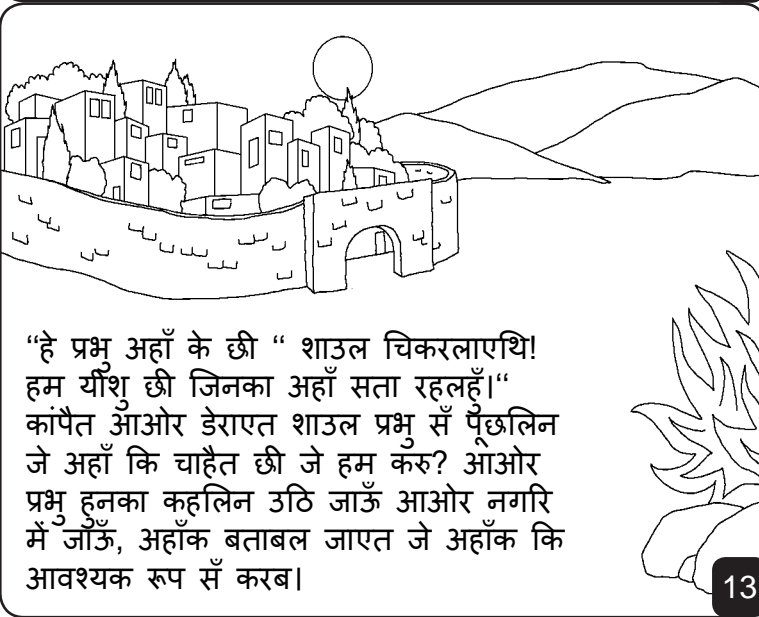 “हे प्रभु अहाँ के छी “ शाउल चिकरलाएथि!
हम यीशु छी जिनका अहाँ सता रहलहुँ।“
कांपैत आओर डेराएत शाउल प्रभु सँ पूछलिन
जे अहाँ कि चाहैत छी जे हम करु? आओर
प्रभु हुनका कहलिन उठि जाऊँ आओर नगरि
में जाऊँ, अहाँक बताबल जाएत जे अहाँक कि
आवश्यक रूप सँ करब।
13